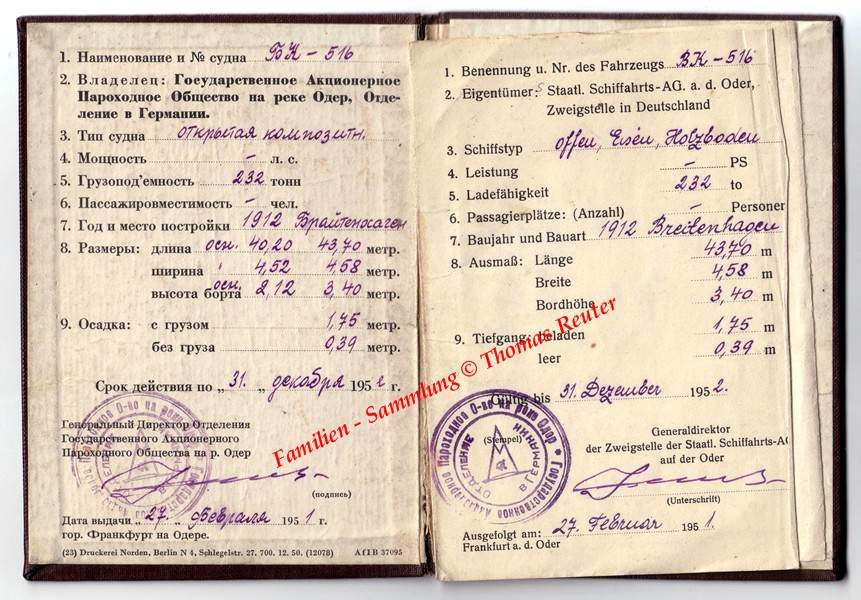 1. Наименование и № судна БК – 516
2. Владелец: Государственное Акционерное
Пароходное Общество на реке Одер, Отде-
ление в Германии.
3. Тип судна открытая композитн.
4. Мощность – л. с.
5. Грузопод'емность 232 тонн
6. Пассажировместимость – чел.
7. Год и место постройки 1912 Брайтенхаген
8. Размеры: длина осн. 40,20 43,70 метр.
ширина " 4,52 4,58 метр.
высота борта осн. 2,12 3,40 метр.
9. Осадка: с грузом 1,75 метр.
без груза 0,39 метр.
Срок действия по „ 31. „ декабря 1952 г.
Генеральный Директор Отделения
Государственного Акционерного
Пароходного Общества на р. Одер
(подпись)
Дата выдачи „ 27. „ Февраля 1951 г.
гор. Франкфурт на Одере.
(23) Druckerei Norden, Berlin N 4, Schlegelstr. 27. 700. 12. 50. (12078) Af1B 37095
1. Benennung u. Nr. des Fahrzeugs BK – 516
2. Eigentümer: Staatl. Schiffahrts-AG. a. d. Oder,
Zweigstelle in Deutschland
3. Schiffstyp offen, Eisen, Holzboden
4. Leistung – PS
5. Ladefähigkeit 232 to
6. Passagierplätze: (Anzahl) – Personen
7. Baujahr und Bauart 1912 Breitenhagen
8. Ausmaß: Länge 43,70 m
Breite 4,58 m
Bordhöhe 3,40 m
9. Tiefgang: geladen 1,75 m
leer 0,39 m
Gültig bis 31. Dezember 1952.
(Stempel)
Государственное Акционерное Пароходное О-во на реке Одер
ОТДЕЛЕНИЕ В ГЕРМАНИИ
Generaldirektor
der Zweigstelle der Staatl. Schiffahrts-AG
auf der Oder
(Unterschrift)
Ausgefolgt am: 27. Februar 1951.
Frankfurt a. d. Oder
Familien - Sammlung © Thomas Reuter